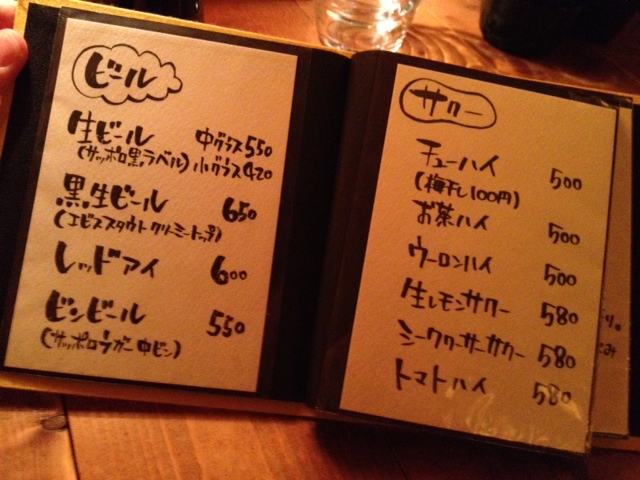 ビール
生ビール 中グラス 550
(サッポロ黒ラベル) 小グラス 420
黒生ビール 650
(エビススタウトクリーミートップ)
レッドアイ 600
ビンビール 550
(サッポロラガー中ビン)
サワー
チューハイ 500
(梅干し100円)
お茶ハイ 500
ウーロンハイ 500
生レモンサワー 580
シークワーサーサワー 580
トマトハイ 580